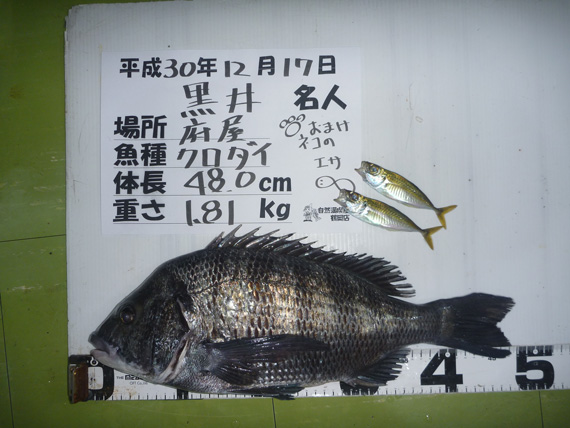 平成30年12月17日
黒井 名人
場所 府屋
おまけ
魚種 クロダイ
ネコの
エサ
体長 48.0cm
重さ 1.81 kg
鶴岡店
0 4 5